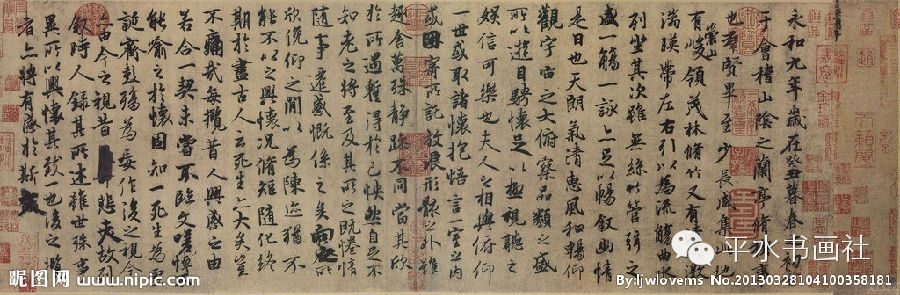 永和九年歲在癸丑暮春之初
于會稽山陰之蘭亭脩稧事
也群賢畢至少長咸集此地
有崇山峻領茂林脩竹又有清流激
湍暎帶左右引以為流觴曲水
列坐其次雖無絲竹管弦之
盛一觴一詠亦足以暢叙幽情
是日也天朗氣清惠風和暢仰
觀宇宙之大俯察品類之盛
所以遊目騁懷足以極視聽之
娛信可樂也夫人之相與俯仰
一世或取諸懷抱悟言一室之內
或因寄所託放浪形骸之外雖
趣舍萬殊靜躁不同當其欣
於所遇蹔得於己怏然自足不
知老之將至及其所之既惓情
隨事遷感慨係之矣向之所
欣俛仰之閒以為陳迹猶不
能不以之興懷況脩短隨化終
期於盡古人云死生亦大矣豈
不痛哉每攬昔人興感之由
若合一契未嘗不臨文嗟悼不
能喻之於懷固知一死生為虛
誕齊彭殤為妄作後之視今
亦由今之視昔悲夫故列
叙時人錄其所述雖世殊事
異所以興懷其致一也後之攬
者亦將有感於斯文
平水书画社
昵图网 www.nipic.com
By:ljwlovems No.20130328104100358181